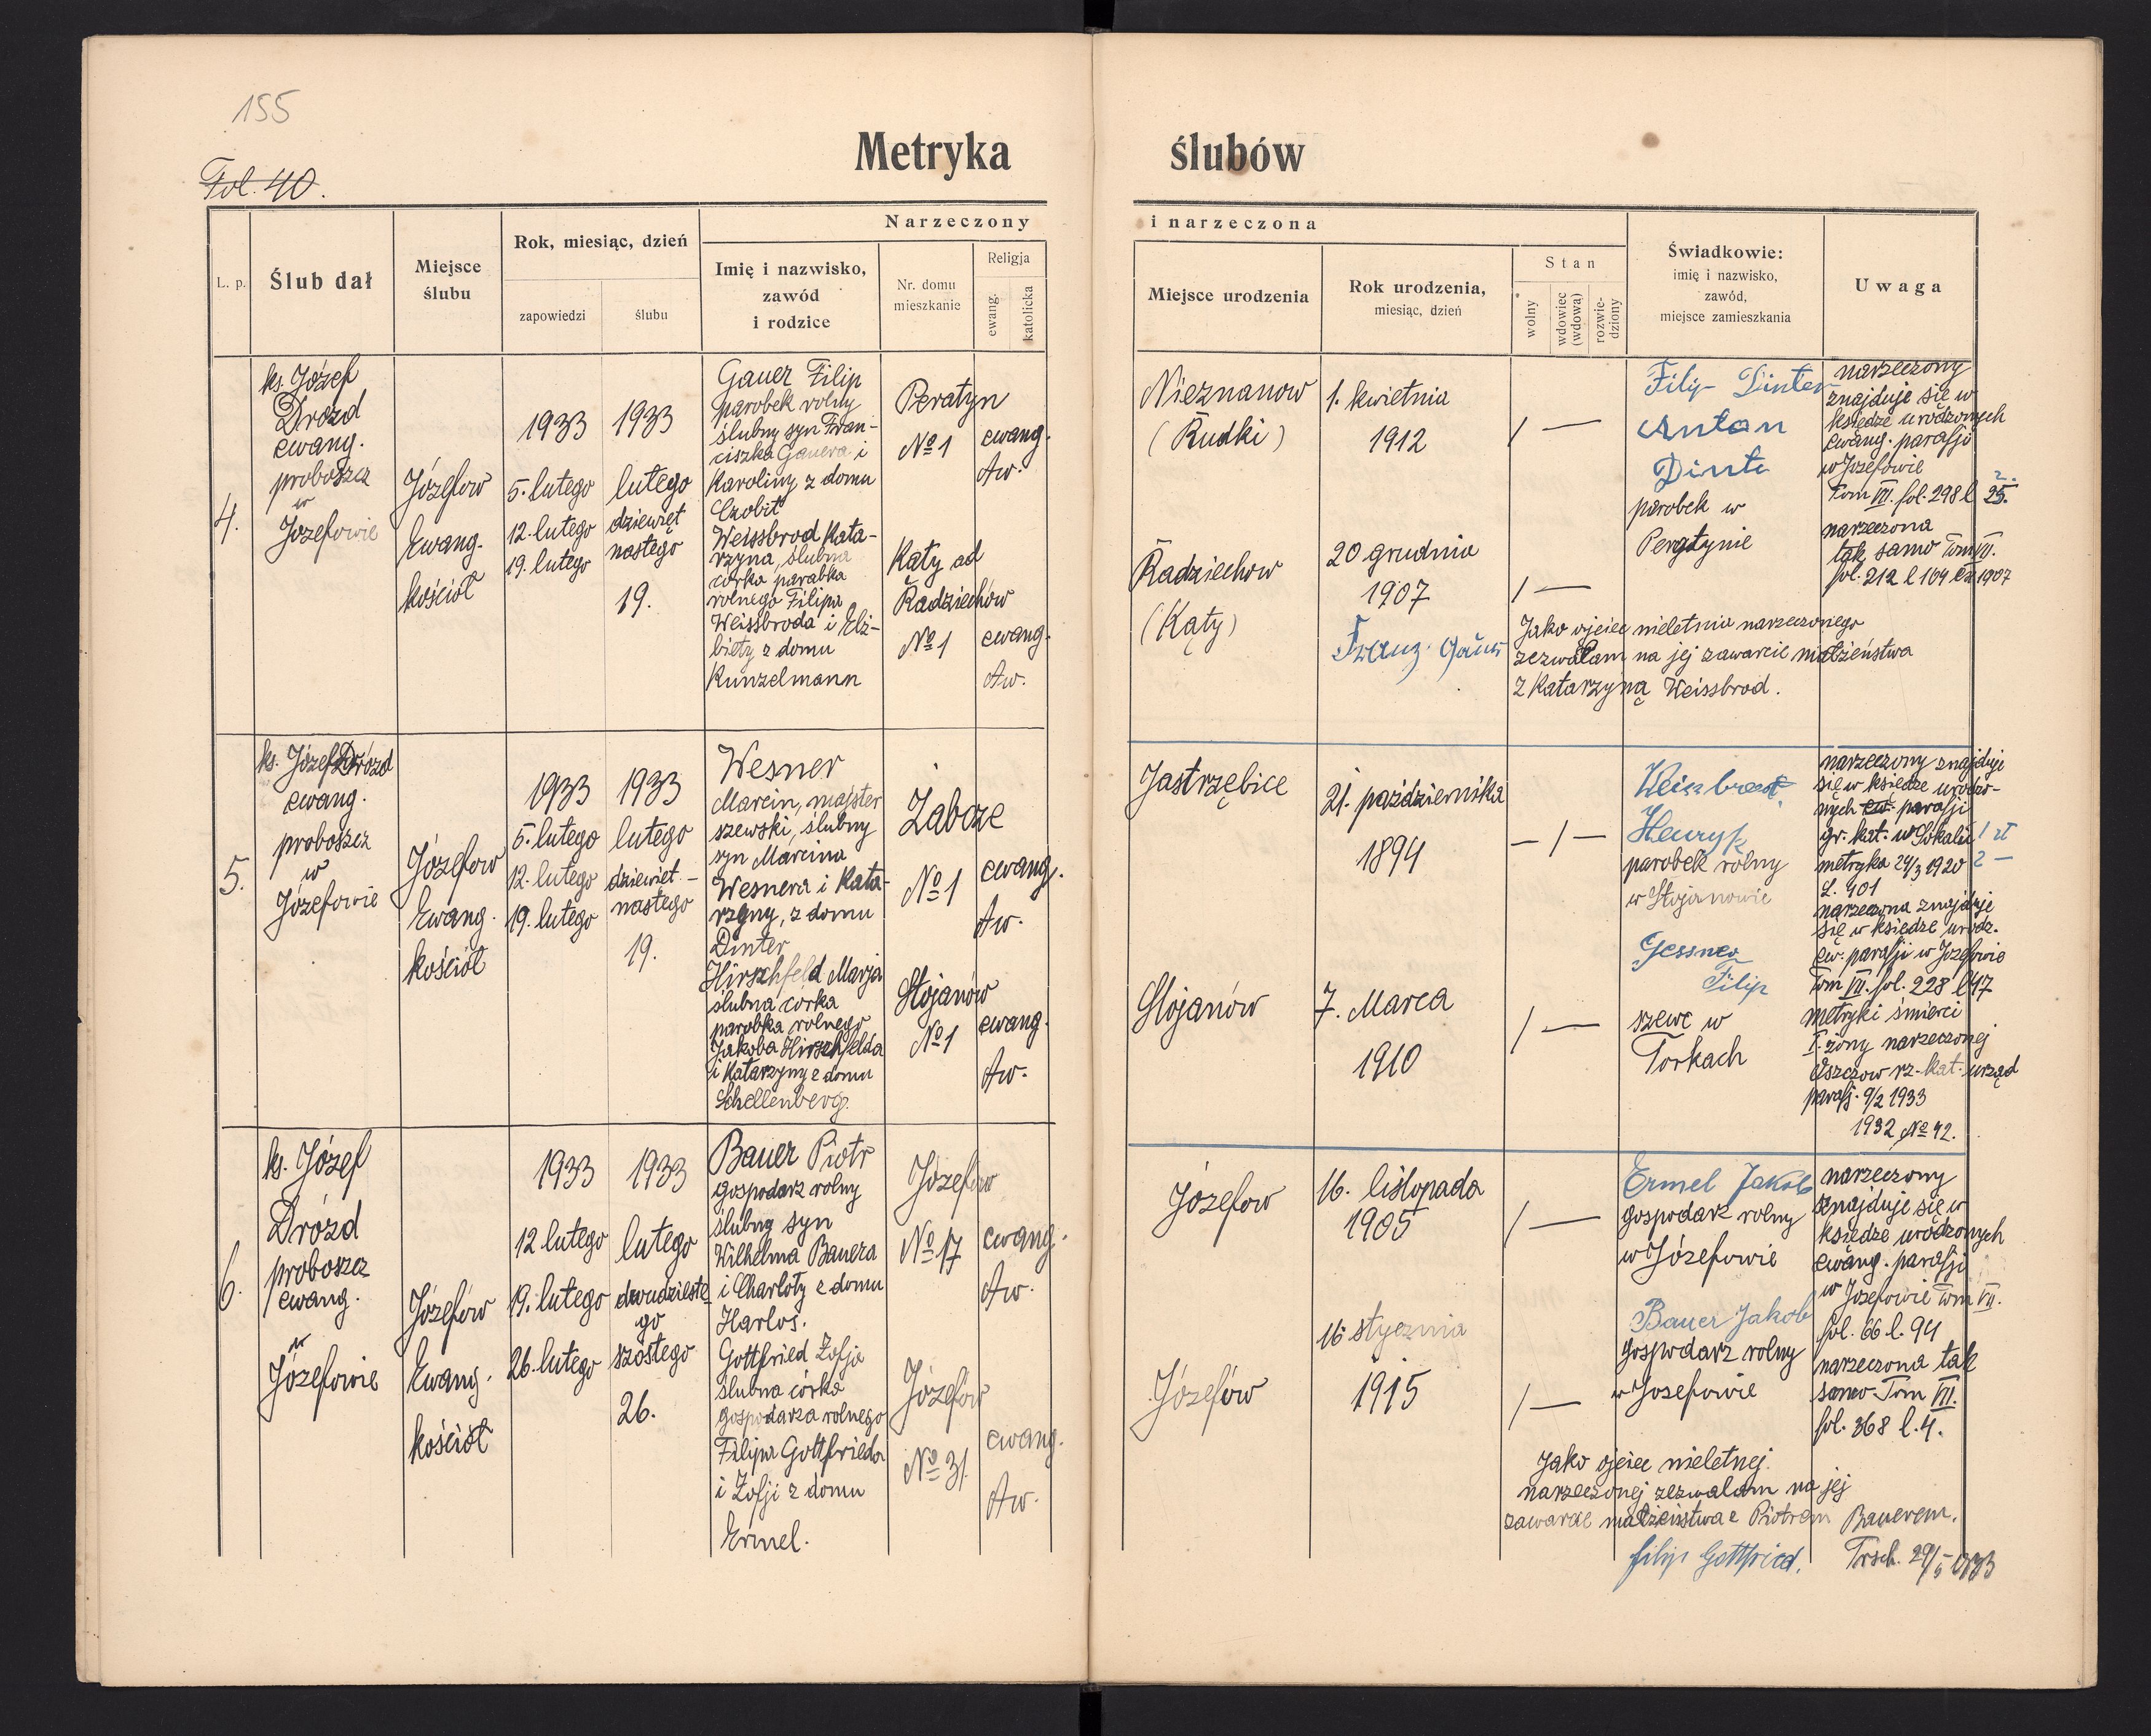 155
Fol. 40.
Metryka ślubów
Narzeczony i narzeczona
L. p.
Ślub dał
Miejsce
ślubu
Rok, miesiąc, dzień
zapowiedzi
ślubu
Imię i nazwisko,
zawód
i rodzice
Nr. domu
mieszkanie
Religja
ewang.
katolicka
Miejsce urodzenia
Rok urodzenia,
miesiąc, dzień
Stan
wolny
wdowiec
(wdowa)
rozwie-
dziony
Świadkowie:
imię i nazwisko,
zawód,
miejsce zamieszkania
Uwaga
4.
ks. Józef
Drozd
ewang.
proboszcz
w
Józefowie
Józefow
Ewang.
kościół
1933
5. lutego
12. lutego
19. lutego
1933
lutego
dziewięt
nastego
19.
Gauer Filip
parobek rolny
ślubny syn Fran-
ciszka Gauera i
Karoliny z domu
Czobit
Weissbrod Kata-
rzyna, ślubna
córka parabka
rolnego Filipa
Weissbroda i Elż-
biety z domu
Kunzelmann
Peratyn
No 1
Katy ad
Radziechów
No 1
ewang.
Aw.
ewang.
Aw.
Nieznanow
(Rudki)
Radziechow
(Katy)
1. kwietnia
1912
20 grudnia
1907
Franz Gauer
/ —
/ —
Filip Dinter
Anton
Dinte
parobek w
Peratynie
narzeczony
znajduje się w
księdze urodzonych
ewang. parafji
w Józefowie
Tom VII. fol. 298 l. 25.
narzeczona
tak samo Tom VI.
fol. 212 l 104 ex 1907
Jako ojciec nieletnia narzeczonego
zezwalam na jej zawarcie małżeństwa
z Katarzyną Weissbrod.
5.
ks. Józef Drozd
ewang.
proboszcz
w
Józefowie
Józefow
Ewang.
kościół
1933
5. lutego
12. lutego
19. lutego
1933
lutego
dziewięt-
nastego
19.
Wesner
Marcin, majster
szewski, ślubny
syn Marcina
Wesnera i Kata-
rzyny, z domu
Dinter
Hirschfeld Marja
ślubna córka
parobka rolnego
Jakoba Hirschfelda
i Katarzyny z domu
Schellenberg.
Zabcze
No 1
Stojanów
No 1
ewang.
Aw.
ewang.
Aw.
Jastrzębice
Stojanów
21. października
1894
7. Marca
1910
— / —
/ —
Weinbrest
Henryk
parobek rolny
w Stojanowie
Gessner
Filip
szewc w
Torkach
narzeczony znajduje
się w księdze urodzo-
nych ew. parafji
gr. kat. w Sokalu 1 zł
metryka 24/3 1920 2 —
L. 401
narzeczona znajduje
się w księdze urodz.
ew. parafji w Józefowie
Tom VII. fol. 228 l 47
metryki śmierci
I. żony narzeczonej
Oszczow rz-kat. urząd
parafj. 9/2 1933
1932 No 42.
6.
ks. Józef
Drozd
proboszcz
ewang.
w
Józefowie
Józefów
Ewang.
kościół
1933
12 lutego
19. lutego
26. lutego
1933
lutego
dwudzieste
go
szóstego
26.
Bauer Piotr
gospodarz rolny
ślubny syn
Wilhelma Bauera
i Charloty z domu
Harlos.
Gottfried Zofja
ślubna córka
gospodarza rolnego
Filipa Gottfrieda
i Zofji z domu
Ermel.
Józefów
No 17
Józefów
No 31.
ewang.
Aw.
ewang.
Aw.
Józefow
Józefów
16. listopada
1905
16 stycznia
1915
/ —
/ —
Ermel Jakob
gospodarz rolny
w Józefowie
Bauer Jakob
gospodarz rolny
w Josefowie
narzeczony
znajduje się w
księdze urodzonych
ewang. parafji
w Józefowie Tom VII.
fol. 66 l. 94
narzeczona tak
samo Tom VII.
fol. 368 l. 4.
Jako ojciec nieletnej
narzeczonej zezwalam na jej
zawarcie małżeństwa z Piotrem Bauerem.
filip Gottfried. Trsch. 29/5 1933